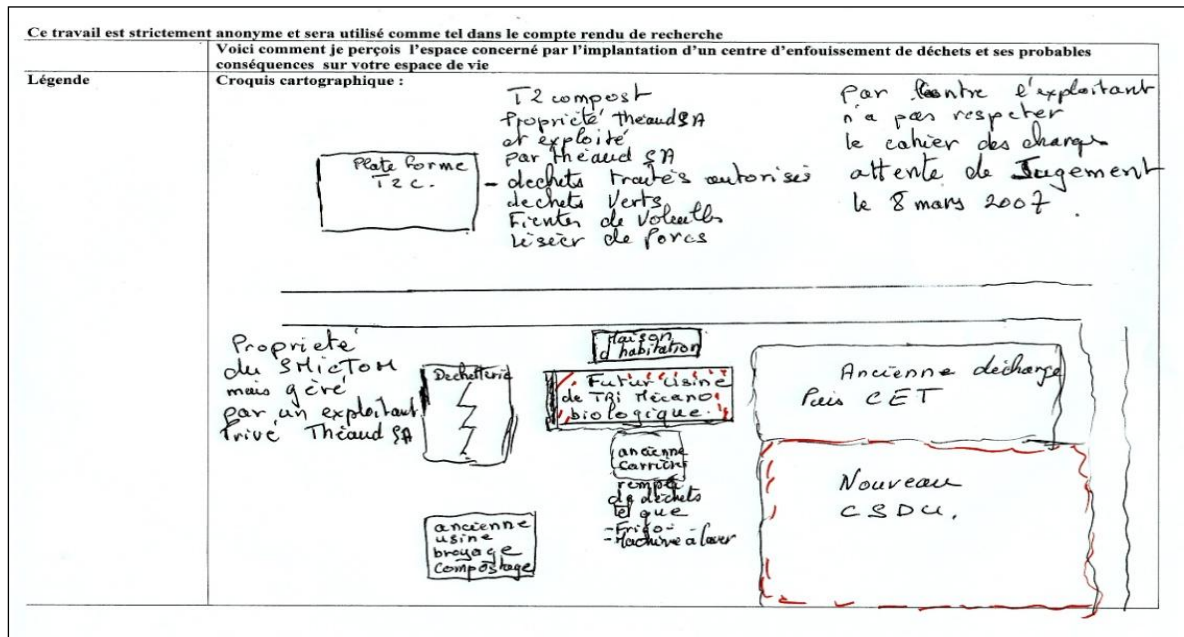 Ce travail est strictement anonyme et sera utilisé comme tel dans le compte rendu de recherche
Voici comment je perçois l'espace concerné par l'implantation d'un centre d'enfouissement de déchets et ses probables
conséquences sur votre espace de vie
Légende
Croquis cartographique :
Plate forme
T2C.
T2 compost
Propriété Theaud SA
et exploité
par Théaud SA
- dechets traités autorisés
dechets verts
Fientes de volailles
Liseir de Porcs
par contre l'exploitant
n'a pas respeter
le cahier des charges
attente de Jugement
le 8 mars 2007.
Propriété
du SMICTOM
mais géré
par un exploitant
Privé Théaud SA
Dechetterie
Maison
d'habitation
Futur Usine
de TRi Mécano
biologique.
ancienne
Carrière
rempli
de déchets
tel que
-Frigo-
-Machine à laver
ancienne
usine
broyage
compostage
Ancienne décharge
Puis CET
Nouveau
CSDU.